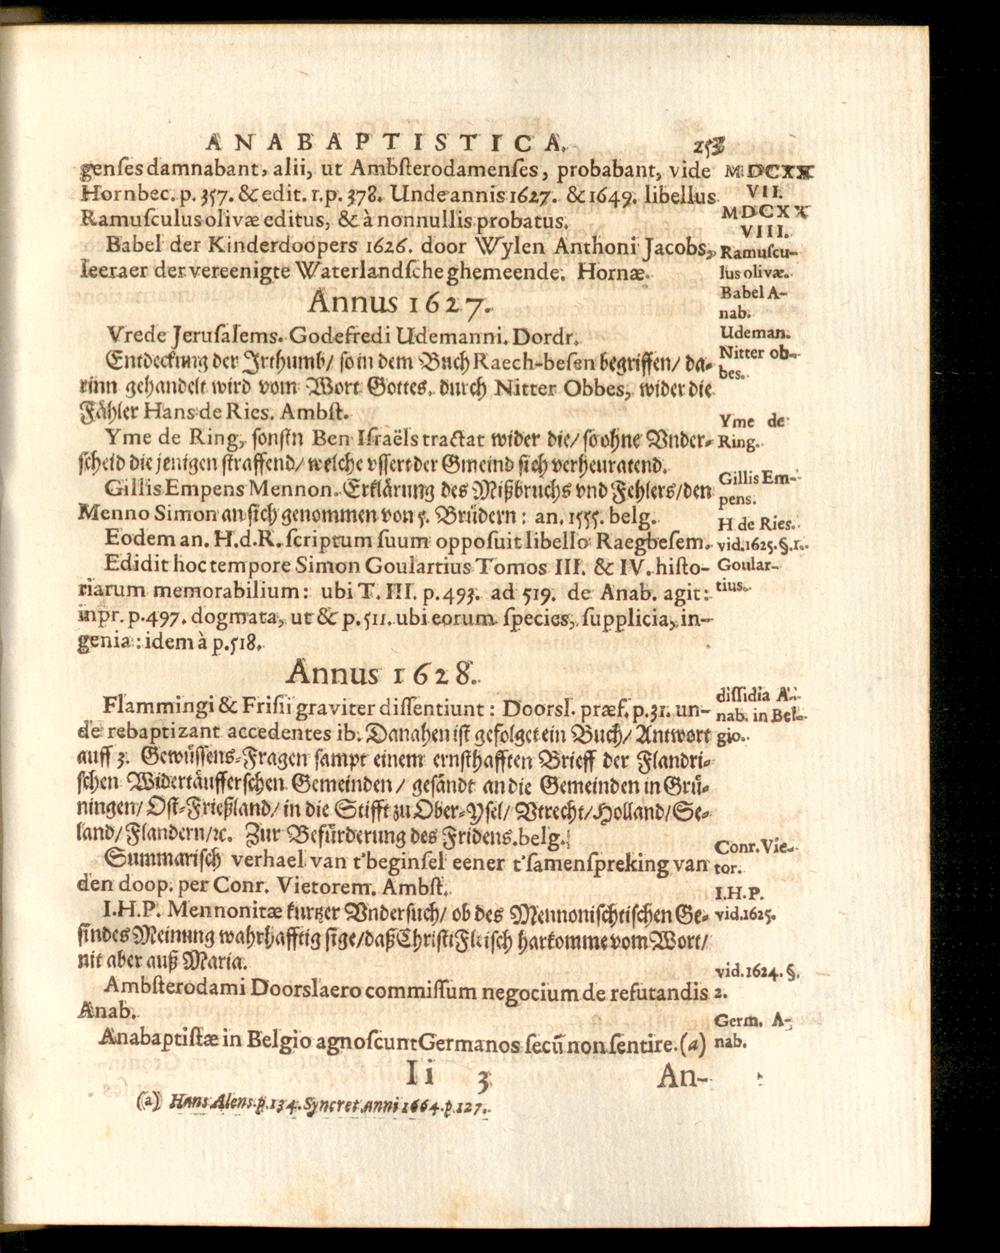 ANABAPTISTICA. 253
genses damnabant, alii, ut Ambsterodamenses, probabant, vide
Hornbec. p. 357. & edit. 1. p. 378. Unde annis 1627. & 1649. libellus
Ramusculus olivæ editus, & à nonnullis probatus.
Babel der Kinderdoopers 1626. door Wylen Anthoni Jacobs,
leeraer der vereenigte Waterlandsche ghemeende. Hornæ.
MDCXX
VII.
MDCXX
VIII.
Ramuscu-
lus olivæ.
Babel A-
nab.
Annus 1627.
Vrede Jerusalems. Godefredi Udemanni. Dordr.
Udeman.
Entdeckung der Irthumb/ so in dem Buch Raech-besen begriffen/ da-
rinn gehandelt wird vom Wort Gottes. durch Nitter Obbes, wider die
Fähler Hans de Ries. Ambst.
Nitter ob-
bes.
Yme de Ring, sonstn Ben Israëls tractat wider die/ so ohne Vnder-
scheid die jenigen straffend/ welche vssert der Gmeind sich verheuratend.
Yme de
Ring.
Gillis Empens Mennon. Erklärung des Mißbruchs vnd Fehlers/ den
Menno Simon an sich genommen von 5. Brüdern: an. 1555. belg.
Gillis Em-
pens.
Eodem an. H.d.R. scriptum suum opposuit libello Raegbesem.
H de Ries.
vid. 1625. §. 1.
Edidit hoc tempore Simon Goulartius Tomos III. & IV. histo-
riarum memorabilium: ubi T. III. p. 493. ad 519. de Anab. agit:
inpr. p. 497. dogmata, ut & p. 511. ubi eorum species, supplicia, in-
genia: idem à p. 518.
Goular-
tius.
Annus 1628.
Flammingi & Frisii graviter dissentiunt: Doorsl. præf. p. 31. un-
de rebaptizant accedentes ib. Danahen ist gefolget ein Buch/ Antwort
auff 3. Gewüssens-Fragen sampt einem ernsthafften Brieff der Flandri-
schen Widertäufferschen Gemeinden/ gesändt an die Gemeinden in Grü-
ningen/ Ost-Frießland/ in die Stifft zu Ober-Ysel/ Vtrecht/ Holland/ Se-
land/ Flandern/ ꝛc. Zur Befürderung des Fridens. belg.
dissidia A-
nab. in Bel-
gio.
Summarisch verhael van t'beginsel eener t'samenspreking van
den doop. per Conr. Vietorem. Ambst.
Conr. Vie-
tor.
I.H.P. Mennonitæ kurtzer Vndersuch/ ob des Mennonischtischen Ge-
sindes Meinung wahrhafftig sige/ daß Christi Fleisch harkomme vom Wort/
nit aber auß Maria.
I.H.P.
vid. 1625.
Ambsterodami Doorslaero commissum negocium de refutandis
Anab.
vid. 1624. §.
2.
Anabaptistæ in Belgio agnoscunt Germanos secū non sentire. (a)
Germ. A-
nab.
Ii 3 An-
(a) Hans Alens. p. 134. Syncret. anni 1664. p. 127.